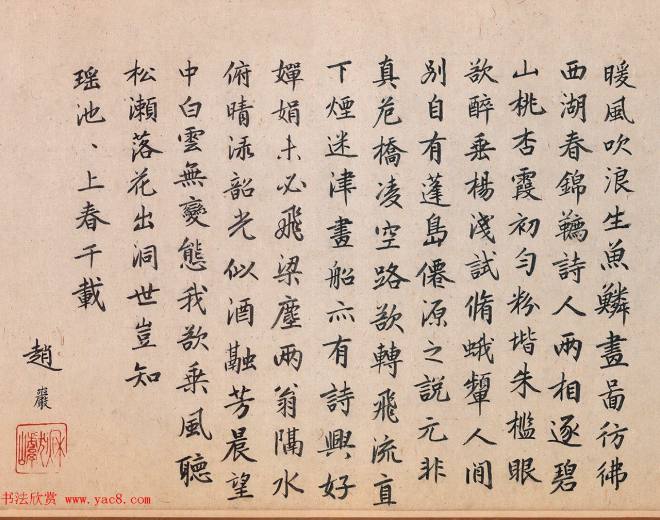 暖風吹浪生魚鱗畫啚彷彿
西湖春錦韉詩人兩相逐碧
山桃杏霞初勻粉墻朱檻眼
欲醉垂楊淺試脩蛾顰人間
別自有蓬島僊源之說元非
真危橋凌空路欲轉飛流直
下煙迷津畫船亦有詩興好
嬋娟未必飛梁塵兩翁隔水
俯晴淥韶光似酒融芳晨望
中白雲無變態我欲乘風聽
松瀨落花出洞世豈知
瑶池、上春千載
趙巖
书法欣赏 www.yac8.com